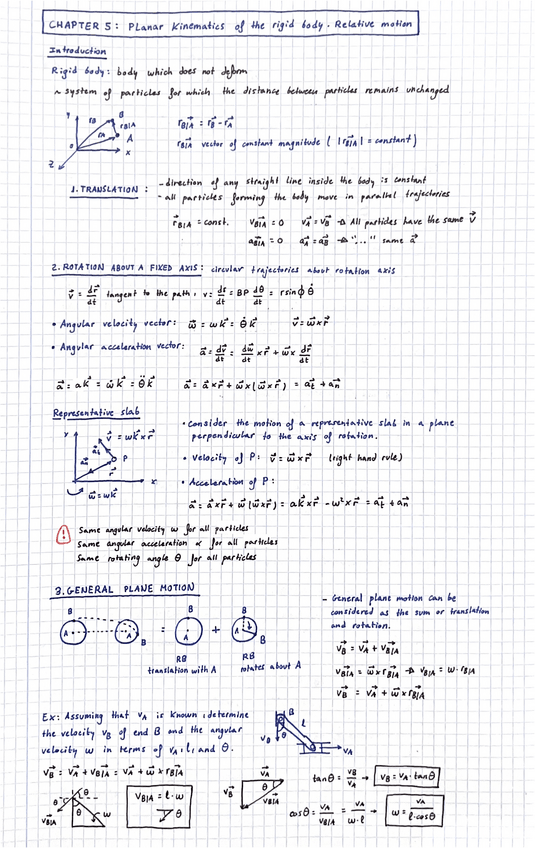 CHAPTER 5: Planar Kinematics of the rigid body. Relative motion
Introduction
Rigid body: body which does not deform
~ system of particles for which the distance between particles remains unchanged
y B
r_B r_B|A
r_A A
0 x
z
r⃗_B|A = r⃗_B - r⃗_A
r⃗_B|A vector of constant magnitude ( |r⃗_B|A| = constant )
1. TRANSLATION: - direction of any straight line inside the body is constant
- all particles forming the body move in parallel trajectories
r⃗_B|A = const. v⃗_B|A = 0 v⃗_A = v⃗_B → All particles have the same v⃗
a⃗_B|A = 0 a⃗_A = a⃗_B → "..." same a⃗
2. ROTATION ABOUT A FIXED AXIS: circular trajectories about rotation axis
v⃗ = dr⃗/dt tangent to the path, v = ds/dt = BP dθ/dt = r sin ϕ θ̇
• Angular velocity vector: ω⃗ = ωk⃗ = θ̇ k⃗ v⃗ = ω⃗ x r⃗
• Angular acceleration vector: a⃗ = dv⃗/dt = dω⃗/dt x r⃗ + ω⃗ x dr⃗/dt
a⃗ = a k⃗ = ω̇ k⃗ = θ̈ k⃗ a⃗ = a⃗ x r⃗ + ω⃗ x (ω⃗ x r⃗) = a⃗_t + a⃗_n
Representative slab
y v⃗ = ωk⃗ x r⃗
a⃗_t P
a⃗_n r⃗
x
ω⃗ = ωk⃗
• Consider the motion of a representative slab in a plane
perpendicular to the axis of rotation.
• Velocity of P: v⃗ = ω⃗ x r⃗ (right hand rule)
• Acceleration of P:
a⃗ = a⃗ x r⃗ + ω⃗ (ω⃗ x r⃗) = a k⃗ x r⃗ - ω² x r⃗ = a⃗_t + a⃗_n
! Same angular velocity ω for all particles
Same angular acceleration α for all particles
Same rotating angle θ for all particles
3. GENERAL PLANE MOTION
B B B
A A B = A + A B
RB translation with A
RB rotates about A
- General plane motion can be
considered as the sum or translation
and rotation.
v⃗_B = v⃗_A + v⃗_B|A
v⃗_B|A = ω⃗ x r⃗_B|A → v_B|A = ω · r_B|A
v⃗_B = v⃗_A + ω⃗ x r⃗_B|A
Ex: Assuming that v_A is known, determine
the velocity v_B of end B and the angular
velocity ω in terms of v_A, l, and θ.
B l
v_B θ
v_A
v⃗_B = v⃗_A + v⃗_B|A = v⃗_A + ω⃗ x r⃗_B|A
θ θ
θ ω
v⃗_B|A
v_B|A = l · ω
θ
v⃗_A
v⃗_B θ
v⃗_B|A
tan θ = v_B/v_A → v_B = v_A · tan θ
cos θ = v_A/v_B|A = v_A/ω · l → ω = v_A/l · cos θ